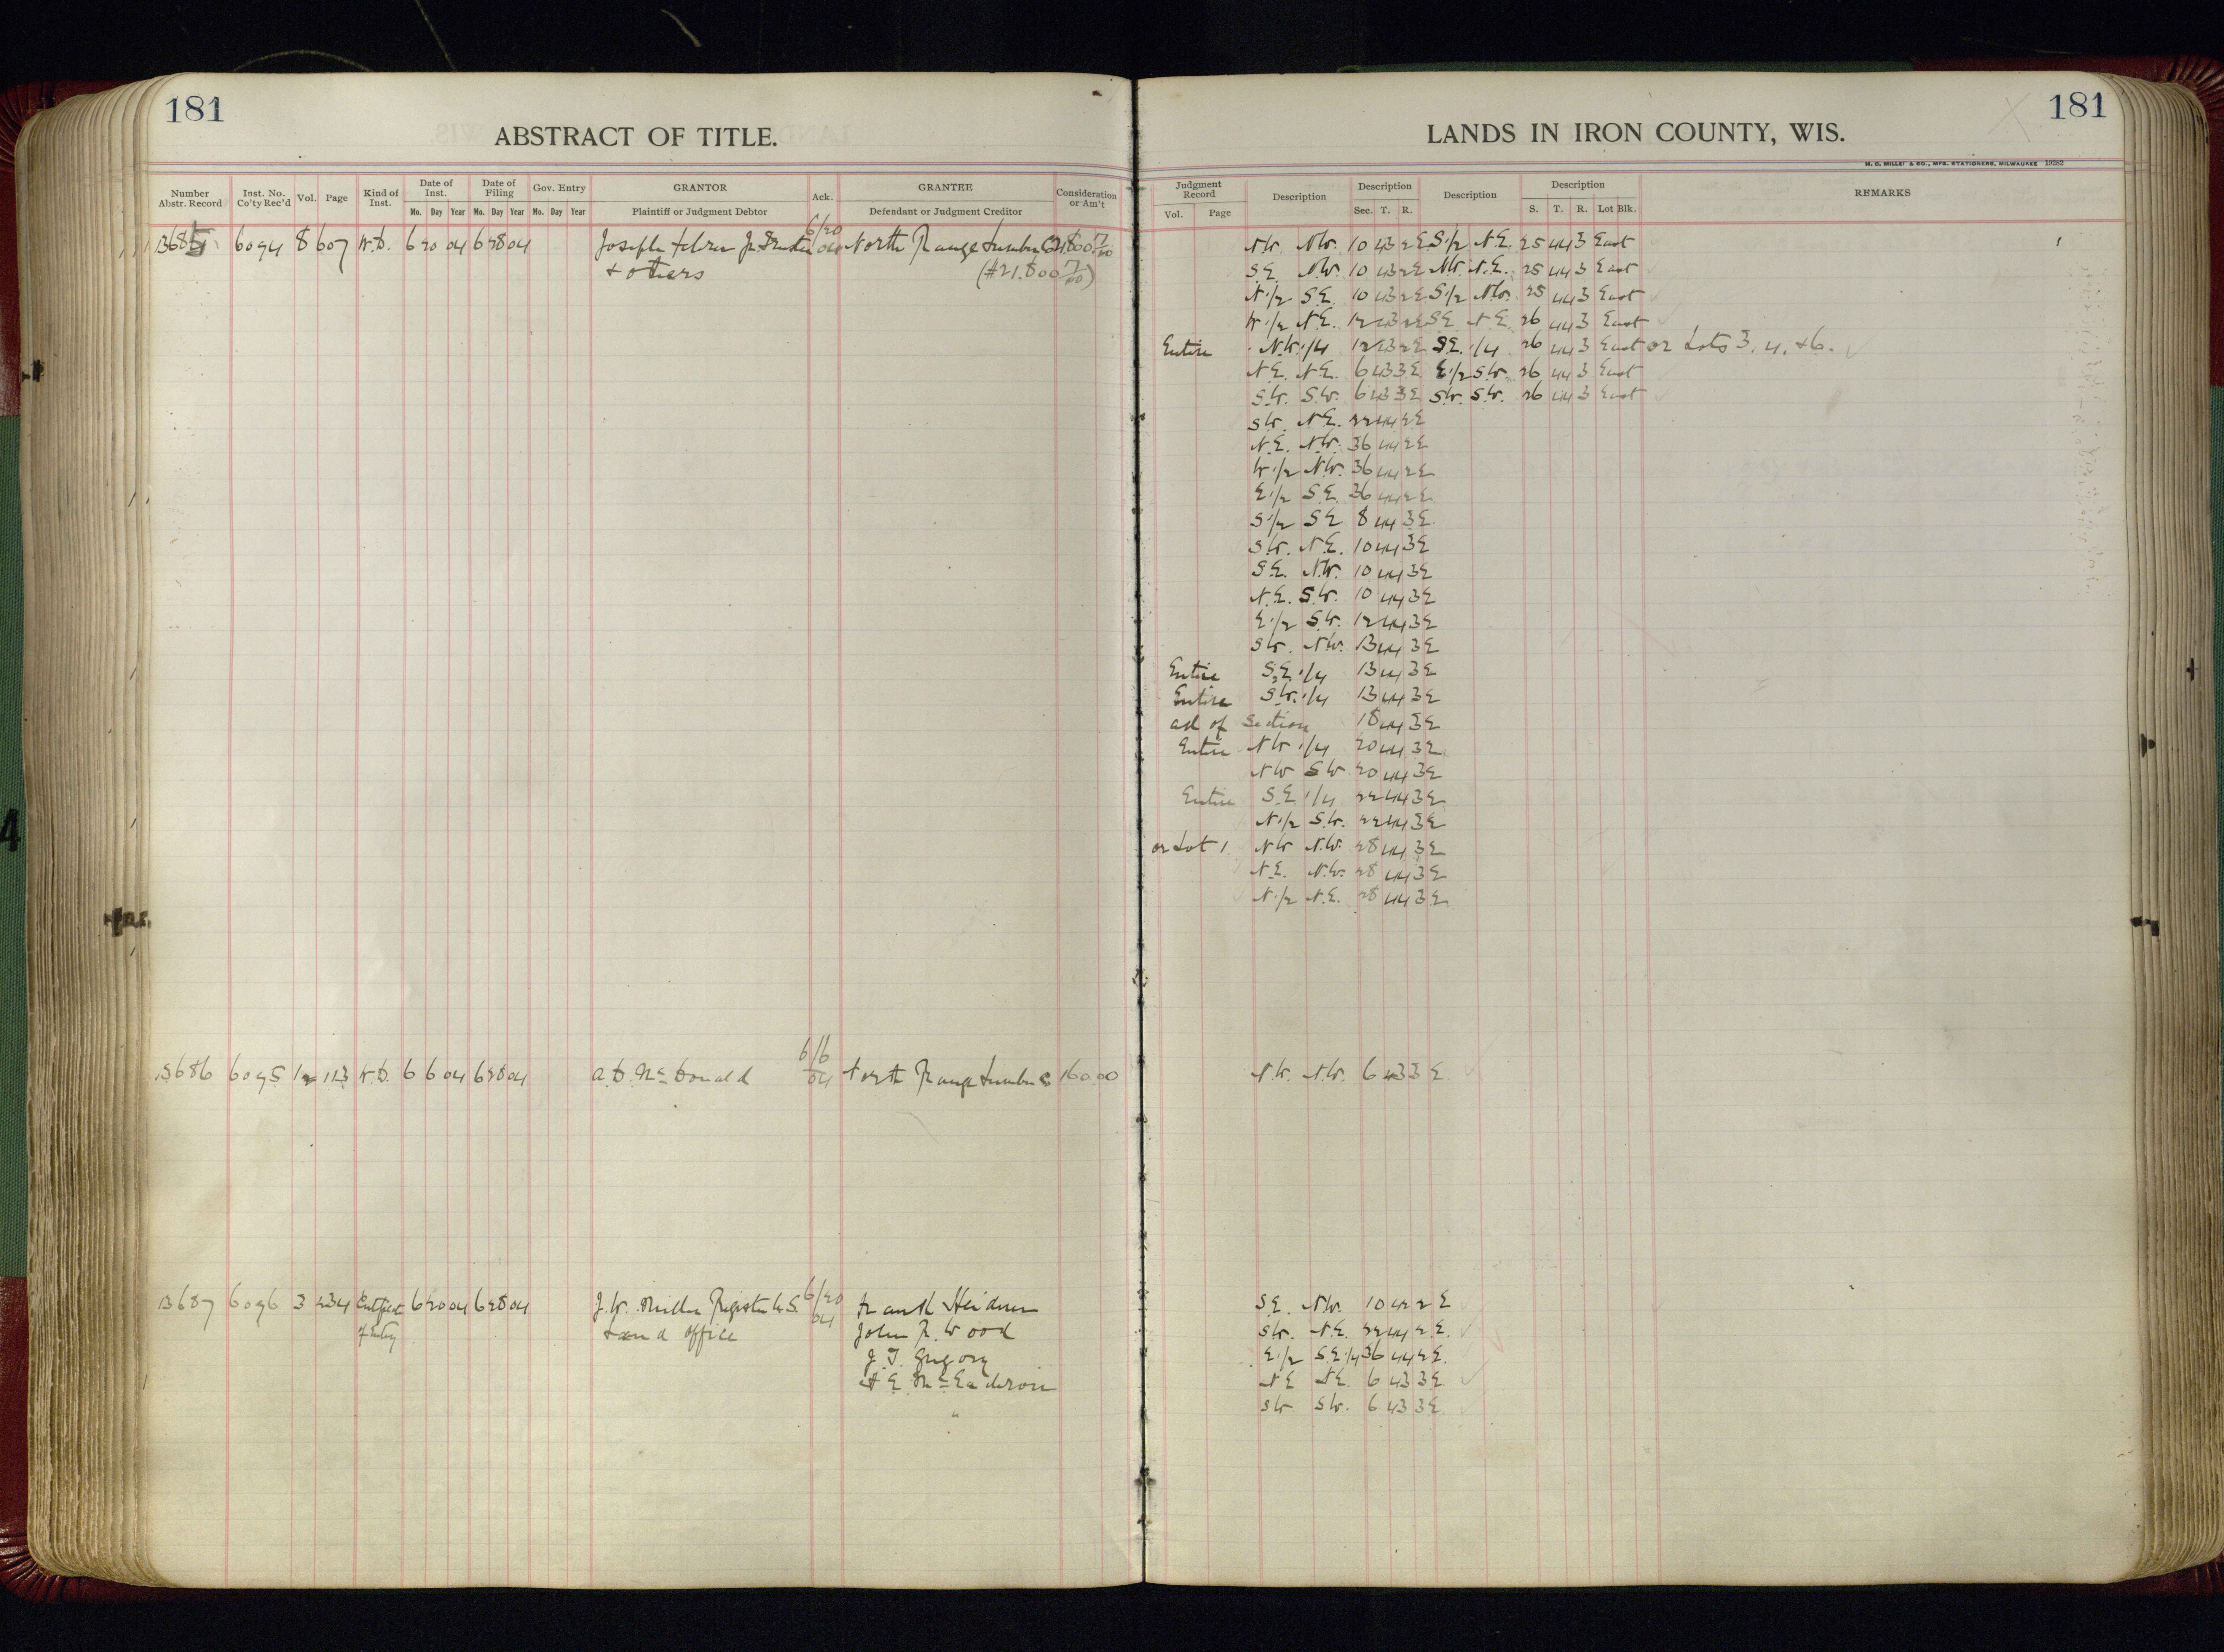 181
ABSTRACT OF TITLE.
Number Abstr. Record Inst. No. Co'ty Rec'd Vol. Page Kind of Inst. Date of Inst. Mo. Day Year Date of Filing Mo. Day Year Gov. Entry Mo. Day Year GRANTOR Plaintiff or Judgment Debtor Ack. GRANTEE Defendant or Judgment Creditor Consideration or Am't
13685 6094 8 607 W.D. 6 20 04 6 28 04 Joseph Jr. Trustee 6/20 04 North Range Lumber Co
& others
13686 6095 12 113 W.D. 6 6 04 6 28 04 A.D. McDonald 6/6 04 North Range Lumber Co 160.00
13687 6096 3 434 of Entry 6 20 04 6 28 04 J.W. Miller Register U.S. 6/20 04 Frank Heidmer
Land Office John R. Wood
J. T. Gregory
"
181
LANDS IN IRON COUNTY, WIS.
H. C. MILLER & CO., MFG. STATIONERS, MILWAUKEE 19282
Judgment Record Vol. Page Description Description Sec. T. R. Description Description S. T. R. Lot Blk. REMARKS
N.W. N.W. 10 43 2 E S.1/2 N.E. 25 44 3 East
S.E. N.W. 10 43 2 E N.W. N.E. 25 44 3 East
N.1/2 S.E. 10 43 2 E S.1/2 N.W. 25 44 3 East
W.1/2 N.E. 12 43 2 E S.E. N.E. 26 44 3 East
Entire N.W.1/4 12 43 2 E S.E.1/4 26 44 3 East or Lots 3, 4, & 6.
N.E. N.E. 6 43 3 E E.1/2 S.W. 26 44 3 East
S.W. S.W. 6 43 3 E S.W. S.W. 26 44 3 East
S.W. N.E. 22 44 2 E
N.E. N.W. 36 44 2 E
W.1/2 N.W. 36 44 2 E
E.1/2 S.E. 36 44 2 E
S.1/2 S.E. 8 44 3 E
S.W. N.E. 10 44 3 E
S.E. N.W. 10 44 3 E
N.E. S.W. 10 44 3 E
E.1/2 S.W. 12 44 3 E
S.W. N.W. 13 44 3 E
Entire S.E.1/4 13 44 3 E
Entire S.W.1/4 13 44 3 E
all of Section 18 44 3 E
Entire N.W.1/4 20 44 3 E
N.W. S.W. 20 44 3 E
Entire S.E.1/4 22 44 3 E
N.1/2 S.W. 22 44 3 E
or Lot 1 N.W. N.W. 28 44 3 E
N.E. N.W. 28 44 3 E
N.1/2 N.E. 28 44 3 E
N.W. N.W. 6 43 3 E
S.E. N.W. 10 42 2 E
S.W. N.E. 22 44 2 E.
E.1/2 S.E.1/4 36 44 2 E.
N.E. N.E. 6 43 3 E
S.W. S.W. 6 43 3 E